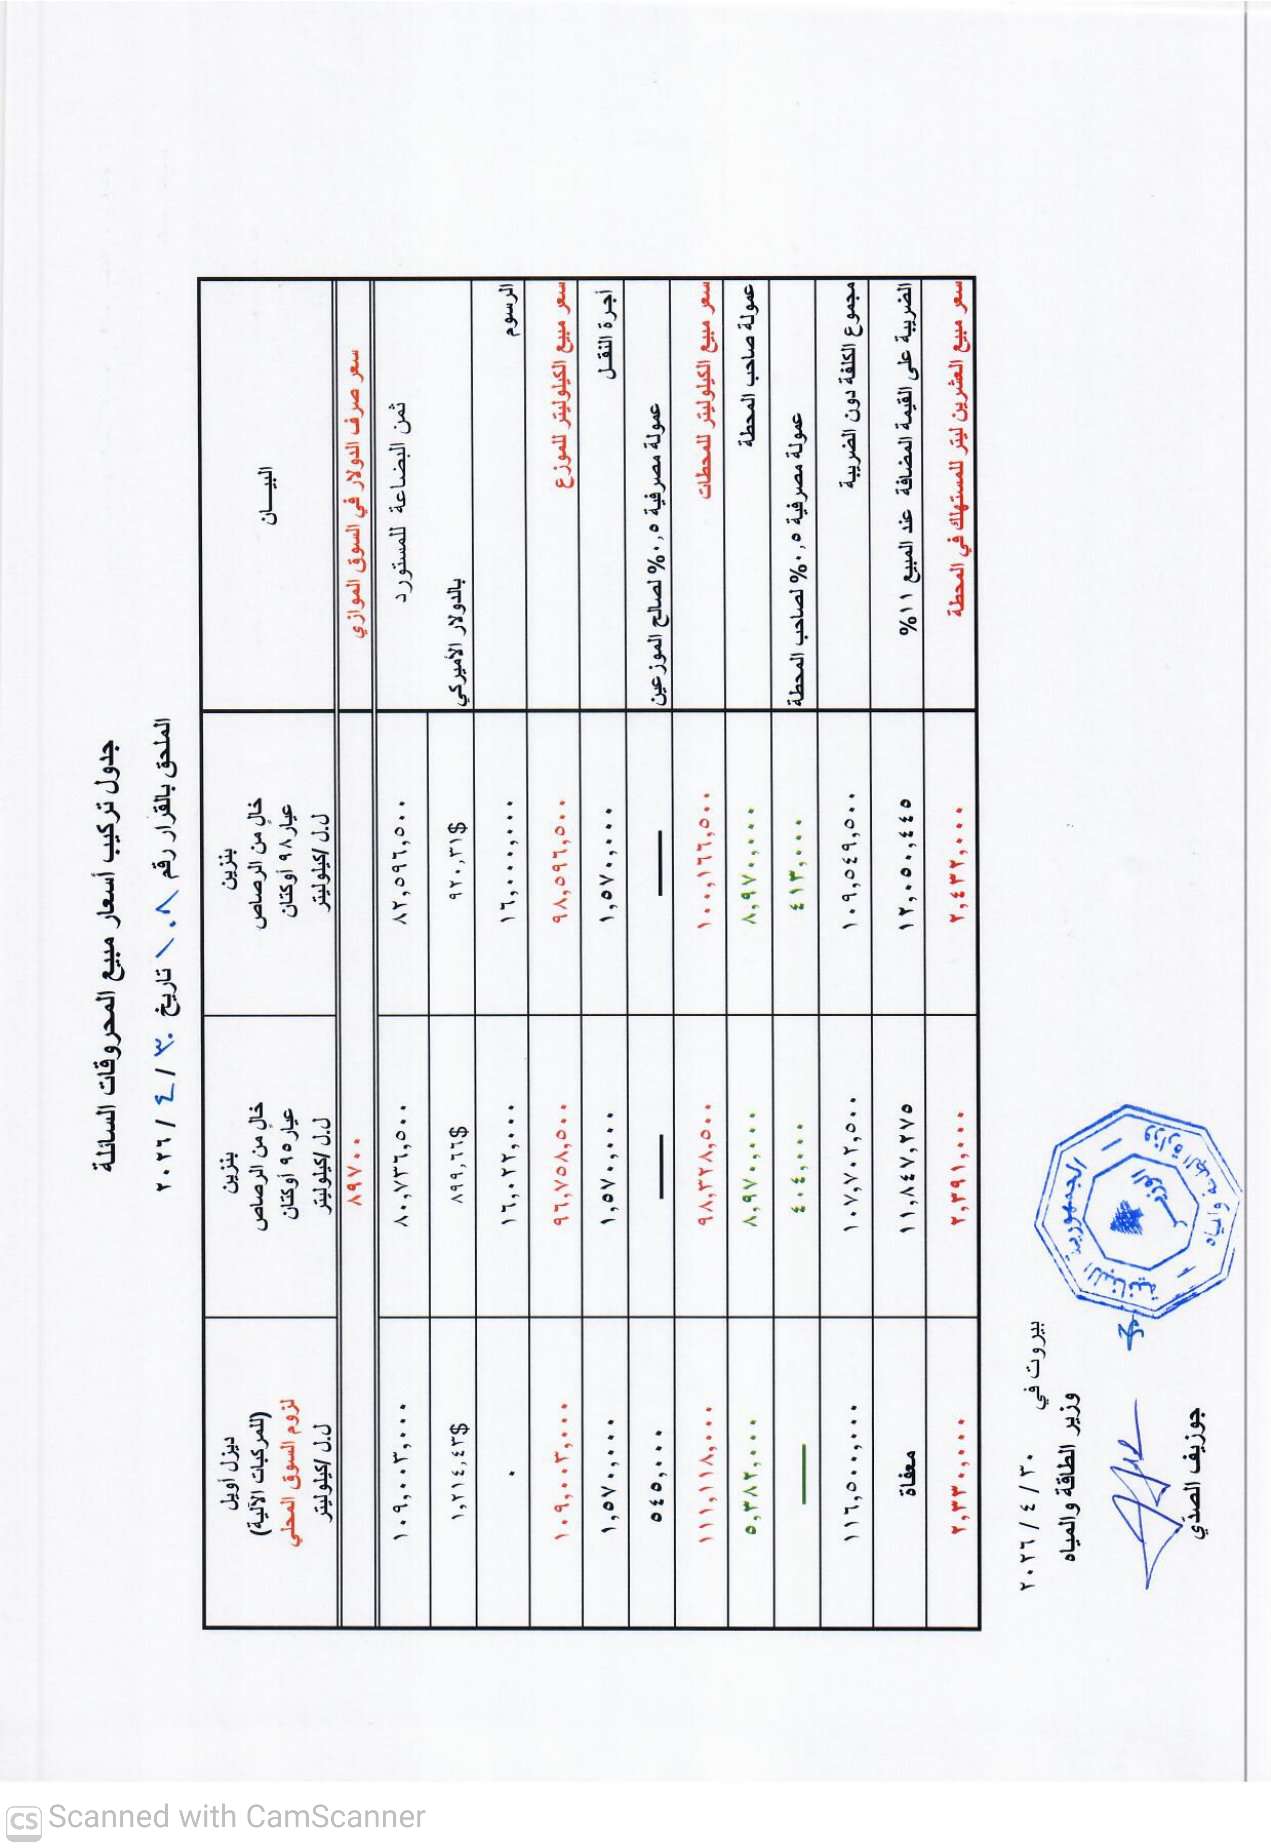 جدول تركيب أسعار مبيع المحروقات السائلة
الملحق بالقرار رقم ١٠٨ تاريخ ٣٠ / ٤ / ٢٠٢٦
البيـــان
بنزين
خالٍ من الرصاص
عيار ٩٨ أوكتان
ل.ل /كيلوليتر
بنزين
خالٍ من الرصاص
عيار ٩٥ أوكتان
ل.ل /كيلوليتر
ديزل أويل
(للمركبات الآلية)
لزوم السوق المحلي
ل.ل /كيلوليتر
سعر صرف الدولار في السوق الموازي ٨٩٧٠٠
ثمن البضاعة للمستورد ٨٢,٥٩٦,٥٠٠ ٨٠,٧٣٦,٥٠٠ ١٠٩,٠٠٣,٠٠٠
بالدولار الأميركي ٩٢٠,٣١$ ٨٩٩,٦٦$ ١,٢١٤,٤٣$
الرسوم ١٦,٠٠٠,٠٠٠ ١٦,٠٢٢,٠٠٠ ٠
سعر مبيع الكيلوليتر للموزع ٩٨,٥٩٦,٥٠٠ ٩٦,٧٥٨,٥٠٠ ١٠٩,٠٠٣,٠٠٠
أجرة النقـل ١,٥٧٠,٠٠٠ ١,٥٧٠,٠٠٠ ١,٥٧٠,٠٠٠
عمولة مصرفية ٠,٥% لصالح الموزعين — — ٥٤٥,٠٠٠
سعر مبيع الكيلوليتر للمحطات ١٠٠,١٦٦,٥٠٠ ٩٨,٣٢٨,٥٠٠ ١١١,١١٨,٠٠٠
عمولة صاحب المحطة ٨,٩٧٠,٠٠٠ ٨,٩٧٠,٠٠٠ ٥,٣٨٢,٠٠٠
عمولة مصرفية ٠,٥% لصاحب المحطة ٤١٣,٠٠٠ ٤٠٤,٠٠٠ —
مجموع الكلفة دون الضريبة ١٠٩,٥٤٩,٥٠٠ ١٠٧,٧٠٢,٥٠٠ ١١٦,٥٠٠,٠٠٠
الضريبة على القيمة المضافة عند المبيع ١١% ١٢,٠٥٠,٤٤٥ ١١,٨٤٧,٢٧٥ معفاة
سعر مبيع العشرين ليتر للمستهلك في المحطة ٢,٤٣٢,٠٠٠ ٢,٣٩١,٠٠٠ ٢,٣٣٠,٠٠٠
بيروت في ٣٠ / ٤ / ٢٠٢٦
وزير الطاقة والمياه
جوزيف الصدّي
الجمهورية اللبنانية
وزارة الطاقة والمياه
الوزير
CS Scanned with CamScanner